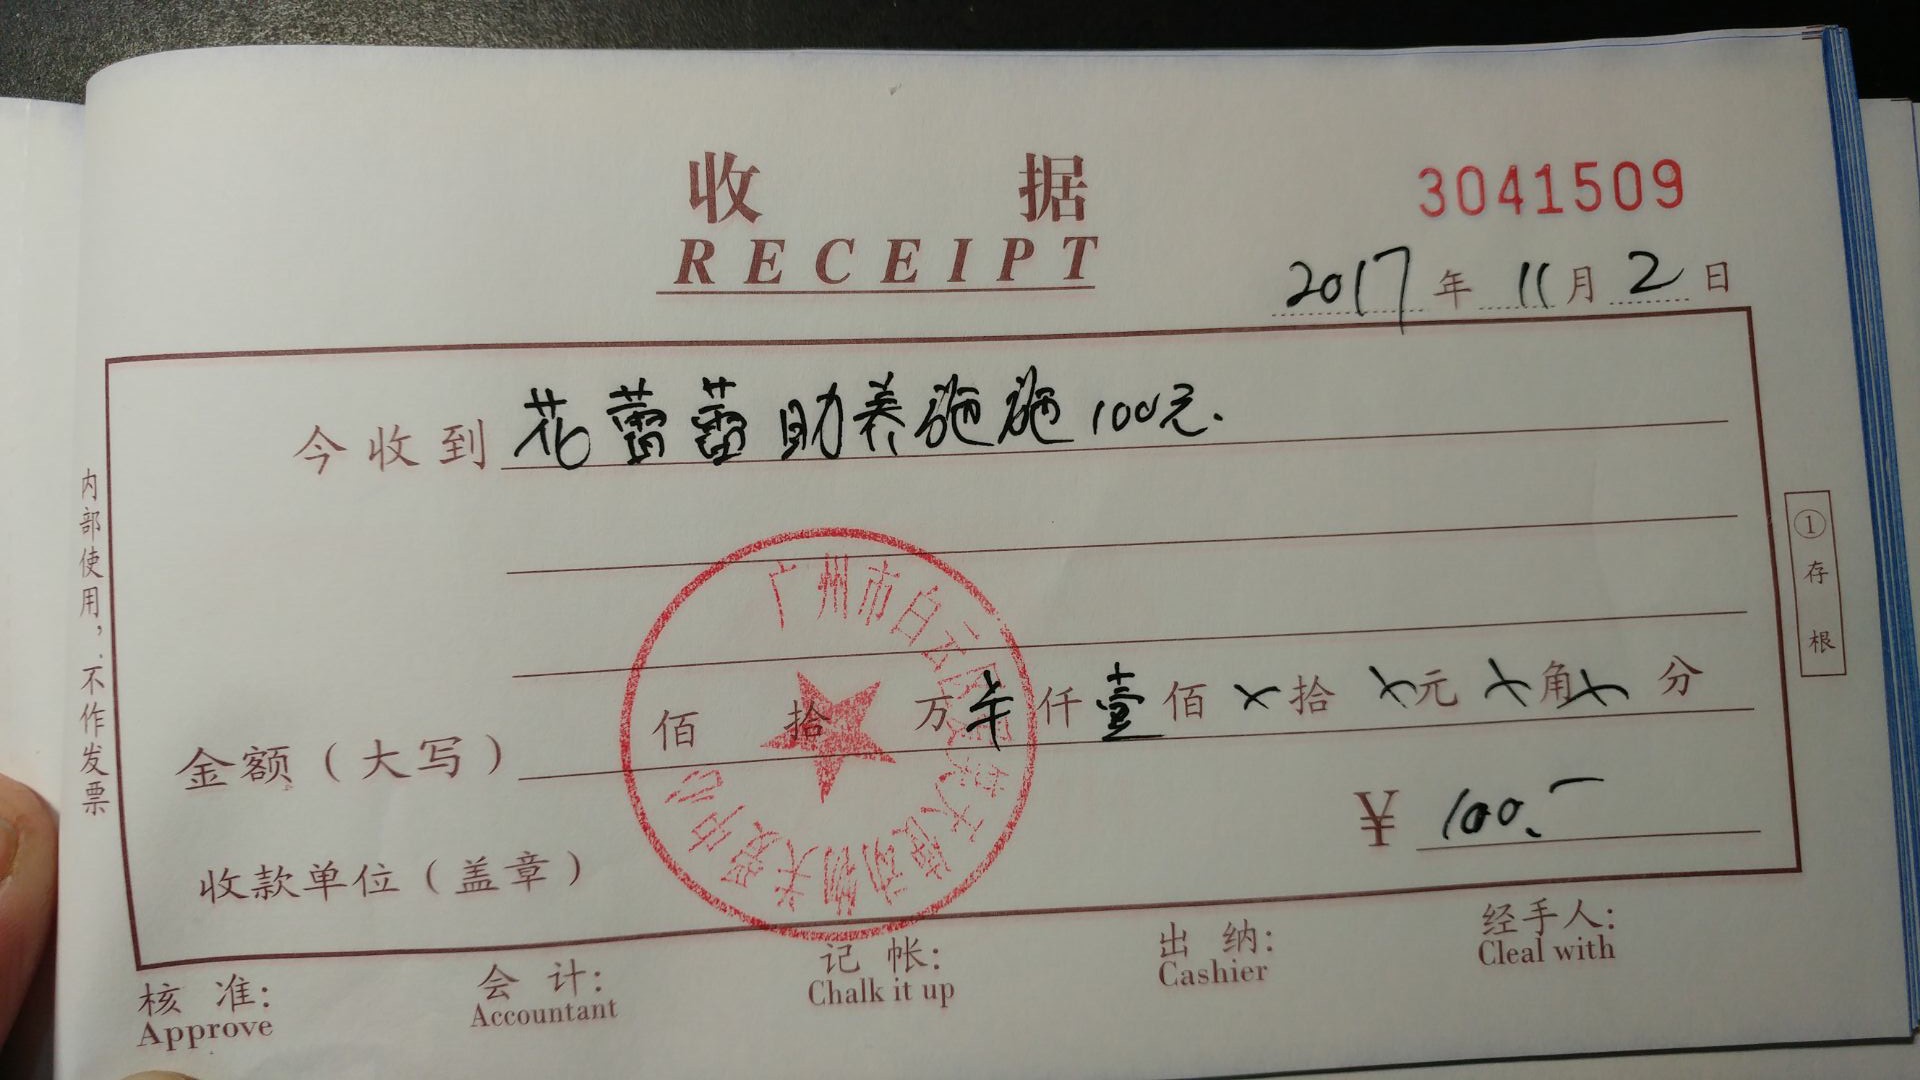 收 据
RECEIPT
3041509
2017年11月2日
今收到花蕾蕾助养施施100元.
金额（大写） 佰 拾 万 仟壹佰 ×拾 ×元 ×角× 分
¥ 100.-
收款单位（盖章）
广州市白云区 天使动物关爱中心
核 准: 会 计: 记 帐: 出 纳: 经手人:
Approve Accountant Chalk it up Cashier Cleal with
内部使用，不作发票
①存根